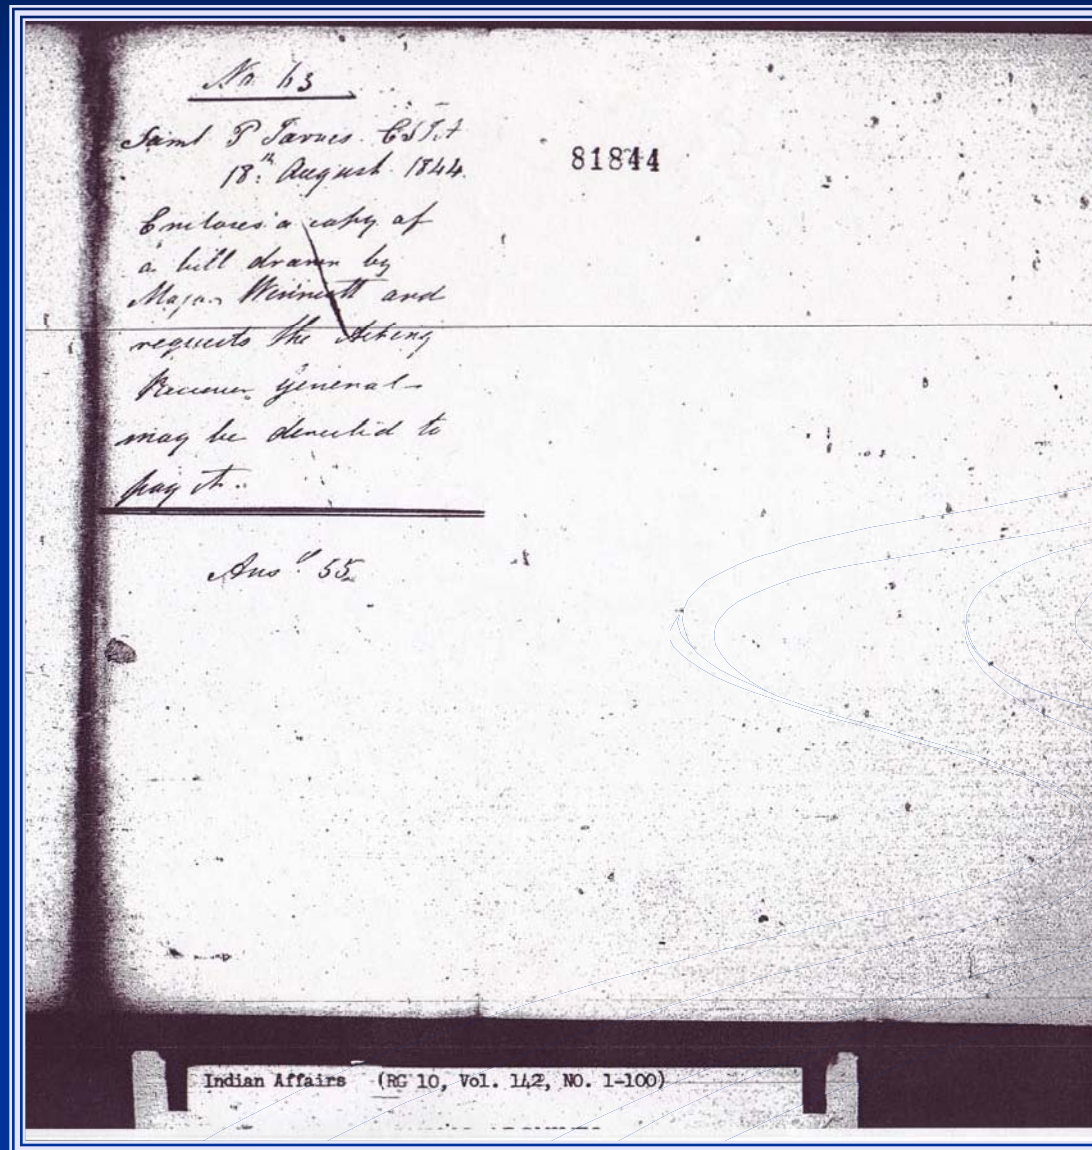 No 63
Saml P Jarvis. C S I A
18th August 1844.
81844
Encloses a copy of
a bill drawn by
Major Winniett and
requests the Acting
Receiver General
may be directed to
pay it.
Ansd 55
Indian Affairs (RG 10, Vol. 142, NO. 1-100)